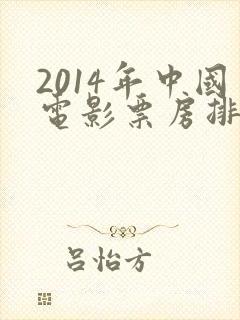 2014年中國
電影票房排
吕怡方